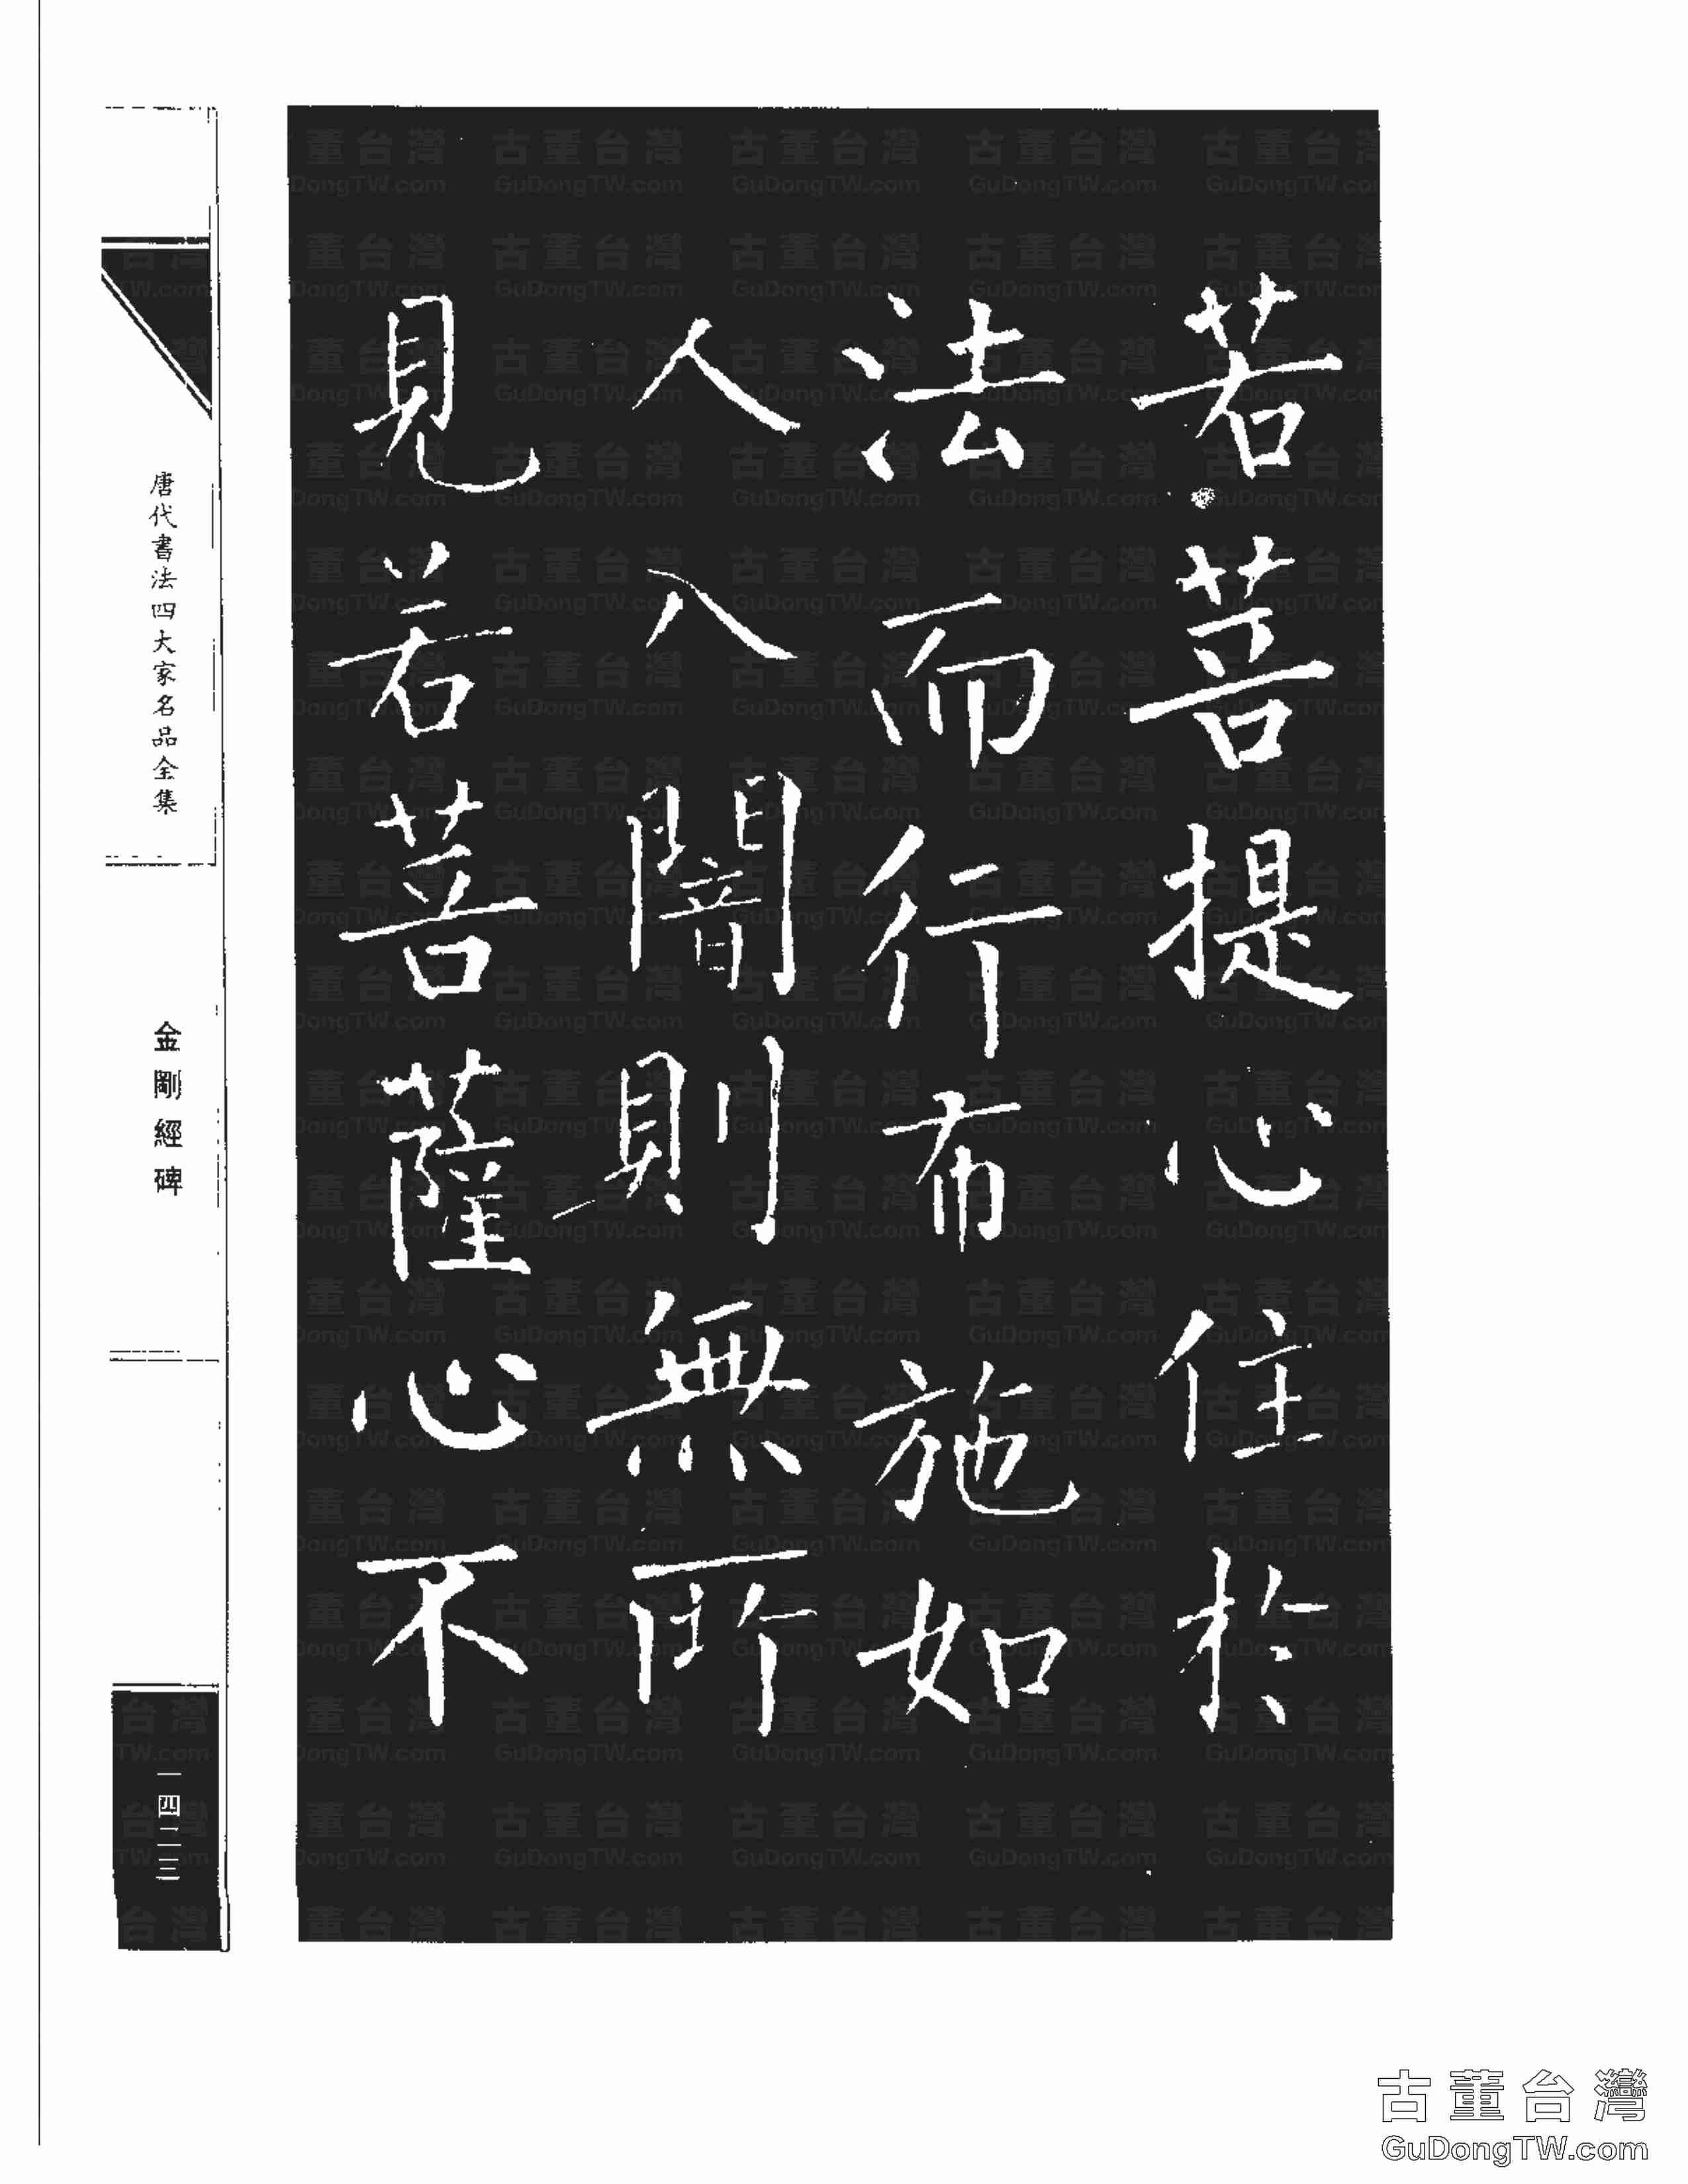 若菩提心住於
法而行布施如
人入闇則無所
見若菩薩心不
唐代書法四大家名品全集
金剛經碑
一四二三
古董台灣
GuDongTW.com